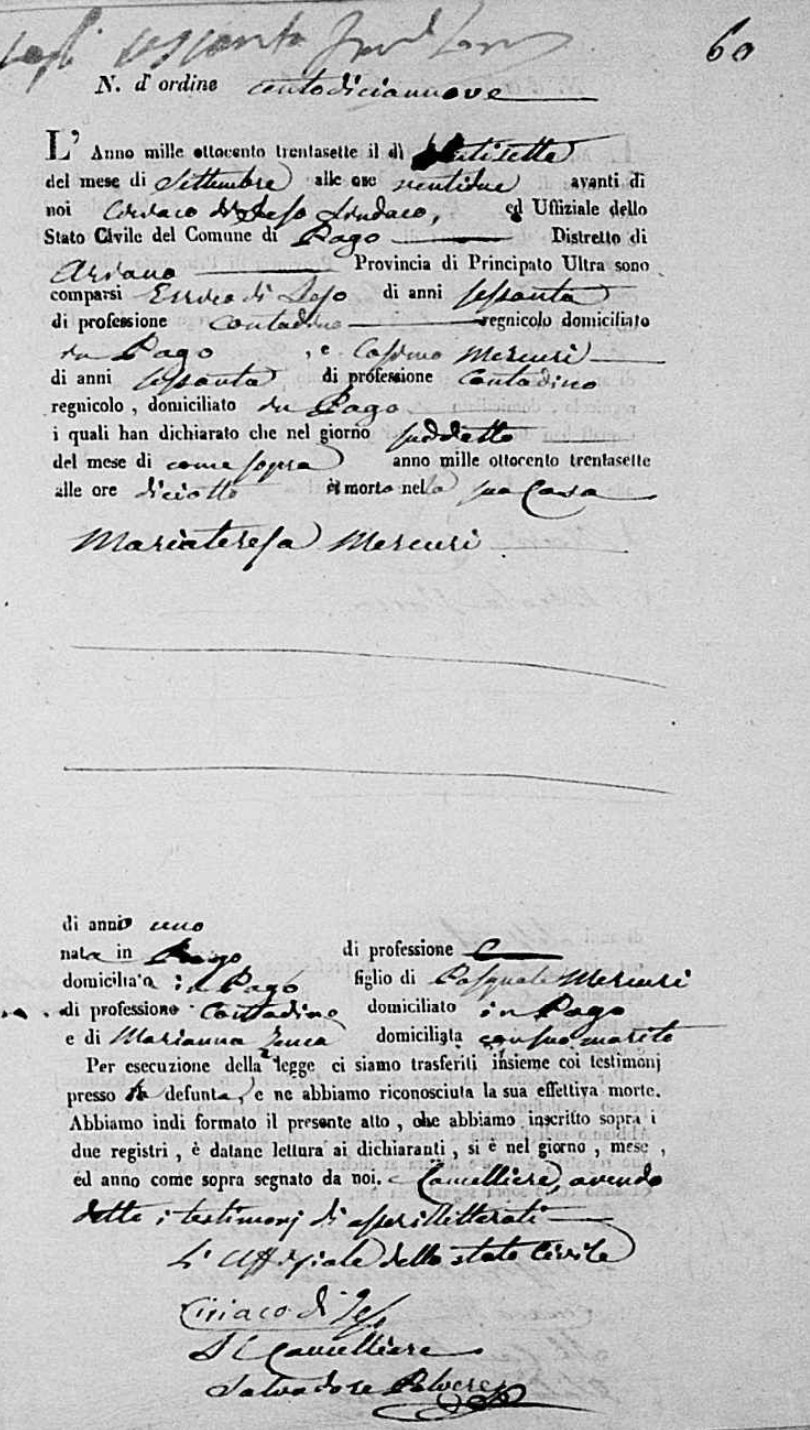 60
N. d'ordine centodiciannove
L' Anno mille ottocento trentasette il dì ventisette
del mese di Settembre alle ore ventidue avanti di
noi Ciriaco di Leso Sindaco, ed Uffiziale dello
Stato Civile del Comune di Pago Distretto di
Ariano Provincia di Principato Ultra sono
comparsi Errico di Leso di anni sessanta
di professione contadino regnicolo domiciliato
in Pago , e Cosimo Mercuri
di anni sessanta di professione contadino
regnicolo , domiciliato in Pago
i quali han dichiarato che nel giorno suddetto
del mese di come sopra anno mille ottocento trentasette
alle ore diciotto è morta nella sua Casa
Mariateresa Mercuri
di anni uno
nata in Pago di professione
domiciliata in Pago figlio di Pasquale Mercuri
di professione Contadino domiciliato in Pago
e di Marianna domiciliata con suo marito
Per esecuzione della legge ci siamo trasferiti insieme coi testimonj
presso la defunta, e ne abbiamo riconosciuta la sua effettiva morte.
Abbiamo indi formato il presente atto , che abbiamo inscritto sopra i
due registri , è datane lettura ai dichiaranti , si è nel giorno , mese ,
ed anno come sopra segnato da noi. e Cancelliere, avendo
detto i testimonj di esser illitterati
L'Uffiziale dello stato Civile
Ciriaco di Leso
Il Cancelliere
Salvadore Polvere